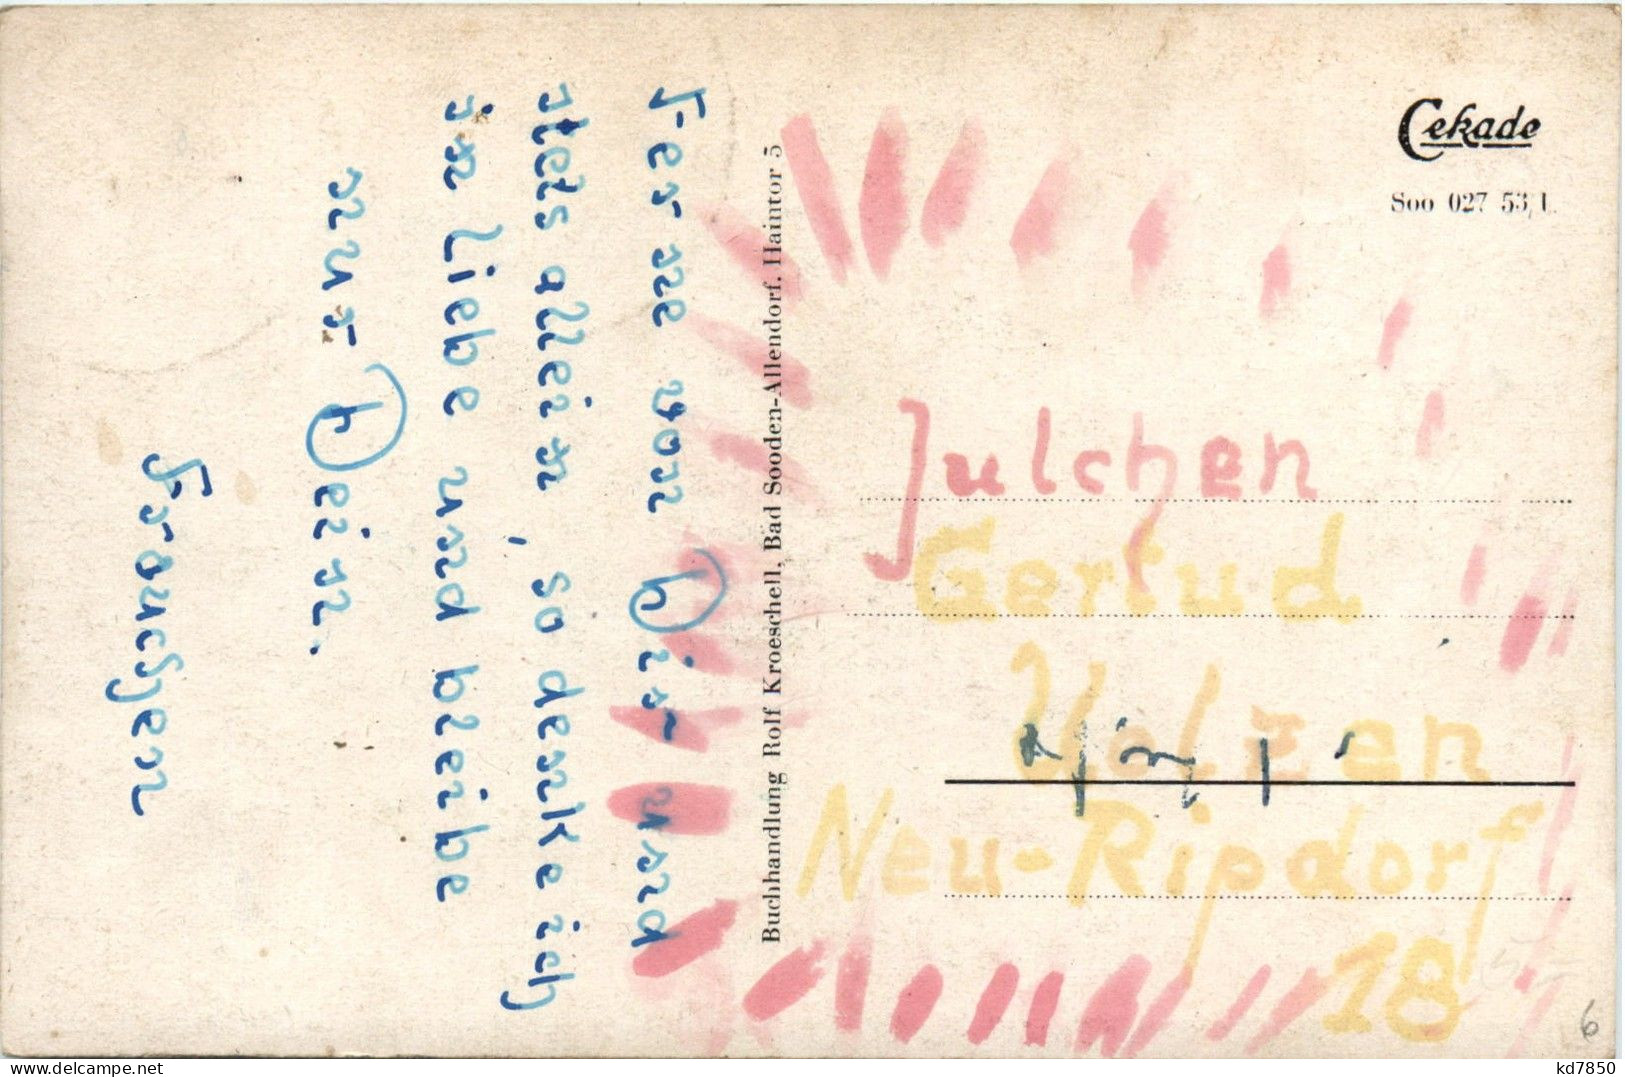 Ferne von Dir und
stets allein, so denke ich
in Liebe und bleibe
nur Dein.
Frauchen
Buchhandlung Rolf Kroeschell, Bad Sooden-Allendorf, Haintor 5
Cekade
Soo 027 53/1.
Julchen
Gertud
Uelzen
Neu-Ripdorf
18
6
kd7850